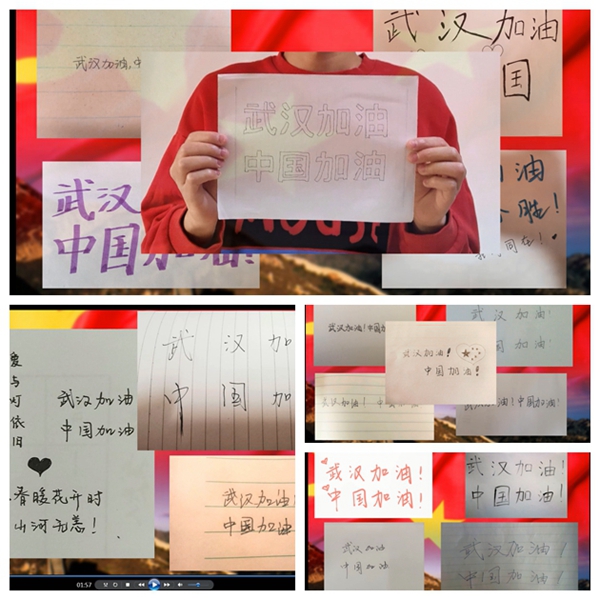 武汉加油,中
武汉加油
国
武汉加油
中国加油
武汉
中国加油!
油
胜!
同在!
爱
与
依
旧
武汉加油
中国加油
春暖花开时
山河无恙!
武 汉 加
中 国 加
武汉加油
中国加油
01:57
武汉加油!中国
武汉加油!
中国加油!
武汉加油!
中国加油!
武汉加油! 中国加油
武汉加油!中国加油!
武汉加油!
中国加油!
武汉加油!
中国加油!
武汉加油
中国加油
武汉加油!
中国加油!